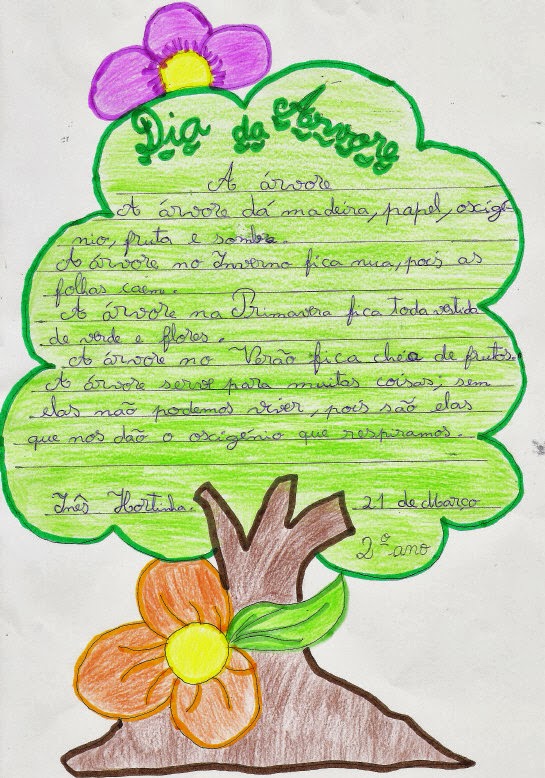 Dia da Árvore
A árvore
A árvore dá madeira, papel, oscigé-
nio, fruta e sombra.
A árvore no Inverno fica nua, pois as
folhas caem.
A árvore na Primavera fica toda vestida
de verde e flores.
A árvore no Verão fica cheia de frutos.
A árvore serve para muitas coisas; sem
elas não podemos viver, pois são elas
que nos dão o oscigénio que respiramos.
Inês Hortinha. 21 de Março
2º ano